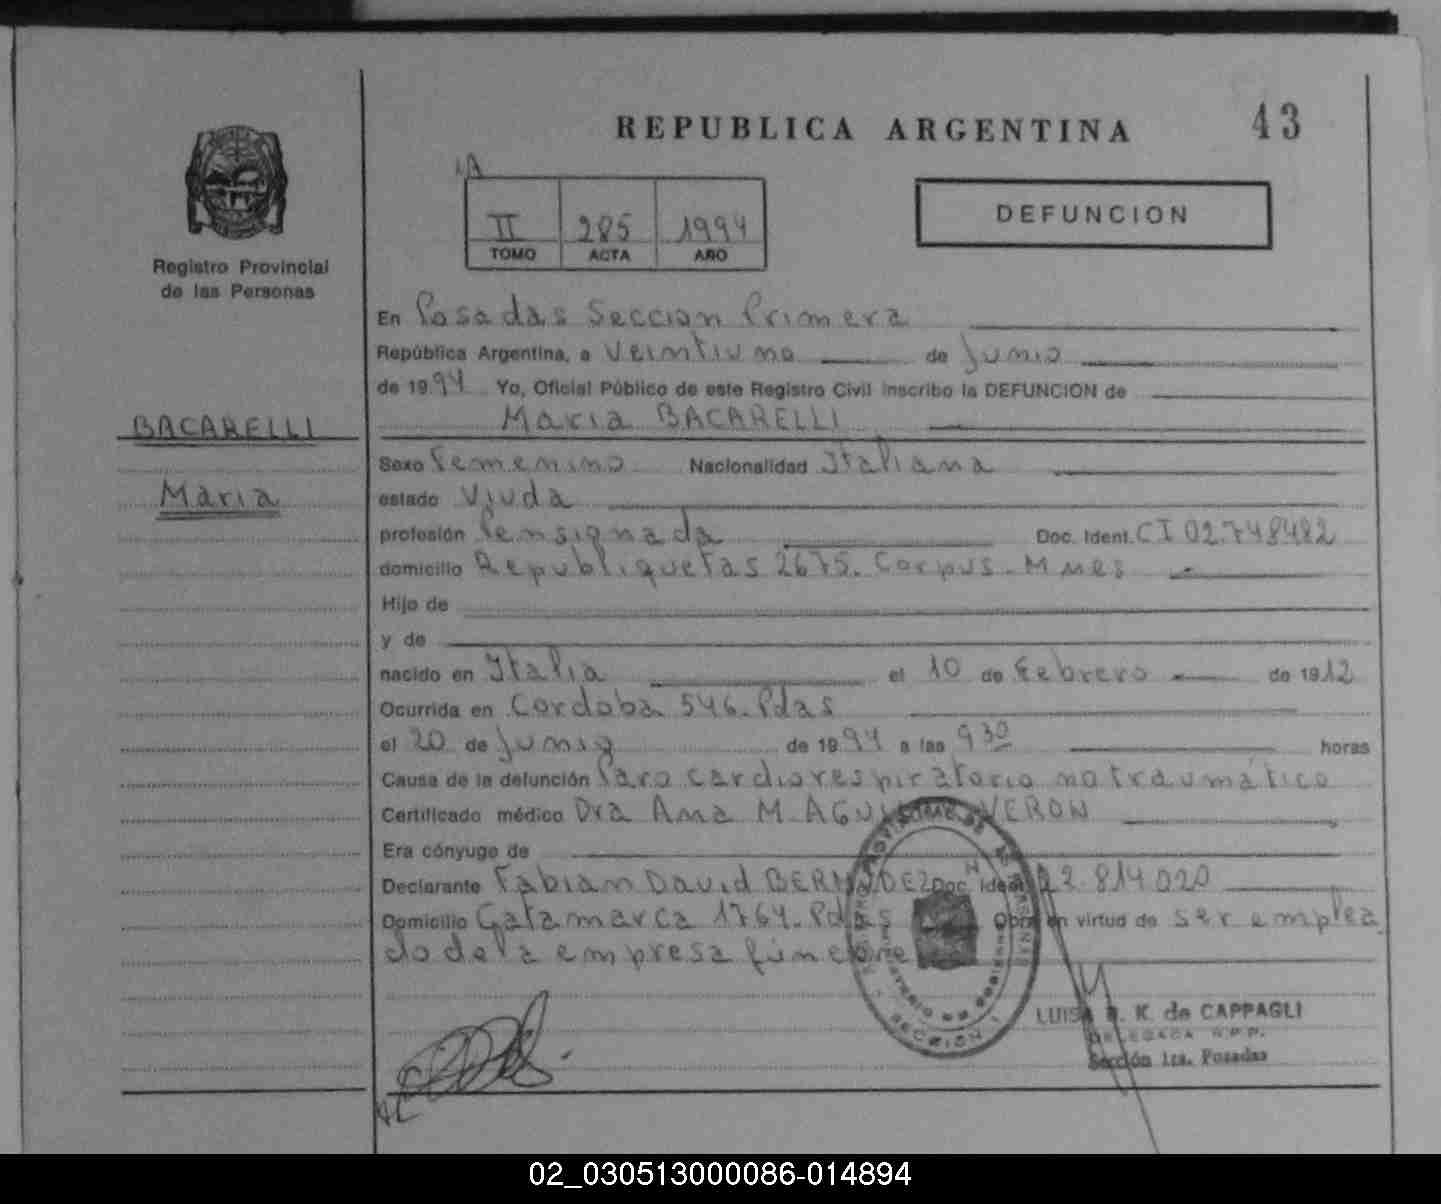 REPUBLICA ARGENTINA 43
1A
II 285 1994
TOMO ACTA AÑO
DEFUNCION
Registro Provincial
de las Personas
BACARELLI
Maria
En Posadas Seccion Primera
República Argentina, a Veintiuno de Junio
de 1994 Yo, Oficial Público de este Registro Civil inscribo la DEFUNCION de
Maria BACARELLI
Sexo Femenino Nacionalidad Italiana
estado Viuda
profesión Pensionada Doc. Ident. CI 02.748482
domicilio Republiquetas 2675. Corpus. Mnes
Hijo de
y de
nacido en Italia el 10 de Febrero de 1912
Ocurrida en Cordoba 546. Pdas
el 20 de Junio de 1994 a las 9 30 horas
Causa de la defunción Paro cardiorespiratorio no traumático
Certificado médico Dra Ana M. VERON
Era cónyuge de
Declarante Fabian David BERMUDEZ Doc. Ident. 22.814020
Domicilio Catamarca 1764. Pdas Obra en virtud de ser emplea
do de la empresa fúnebre
SECCION 1
LUISA R. K. de CAPPAGLI
DELEGADA R.P.P.
Sección 1ra. Posadas
02_030513000086-014894